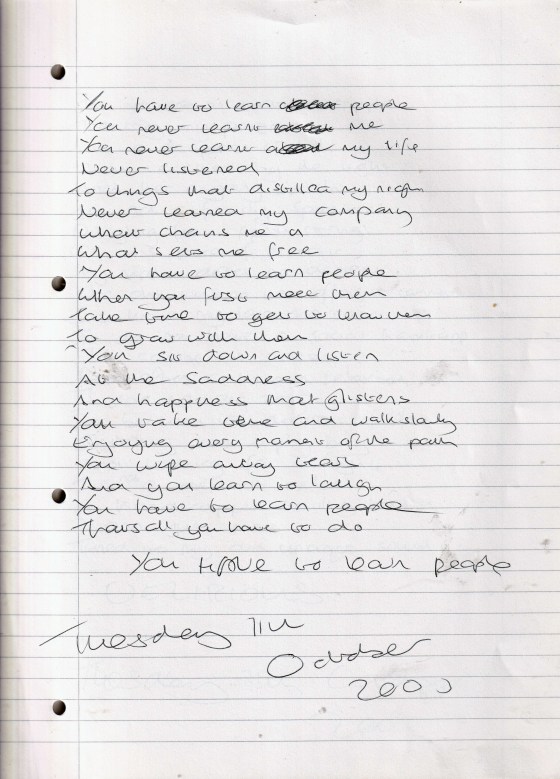 You have to learn people
You never learnt me
You never learnt my life
Never listened
To things that distilled my
Never learned my company
What chains me
What sets me free
You have to learn people
When you first meet them
Take time to get to know them
To grow with them
You sit down and listen
At the Saddness
And happyness that glistens
You take time and walk slowly
Enjoying every moment of the path
You wipe away tears
And you learn to laugh
You have to learn people
Thats all you have to do
You have to learn people
Tuesday
October